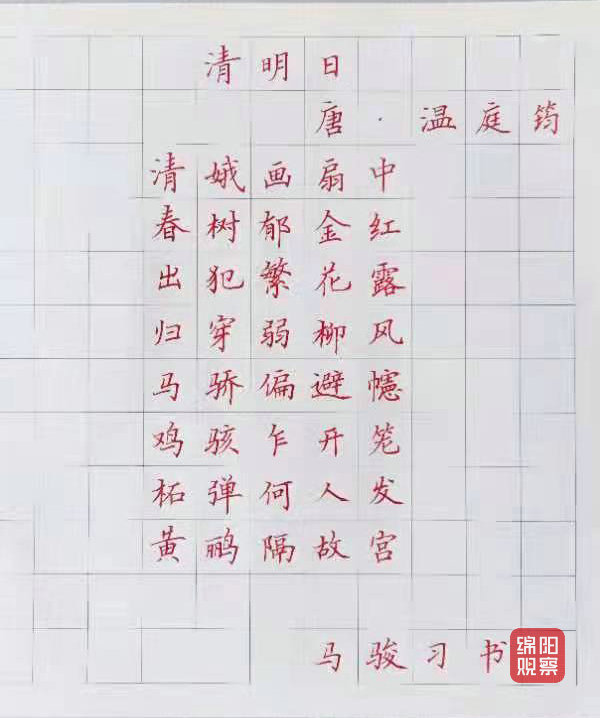 清明日
唐·温庭筠
清娥画扇中
春树郁金红
出犯繁花露
归穿弱柳风
马骄偏避幰
鸡骇乍开笼
柘弹何人发
黄鹂隔故宫
马骏习书
绵阳
观察